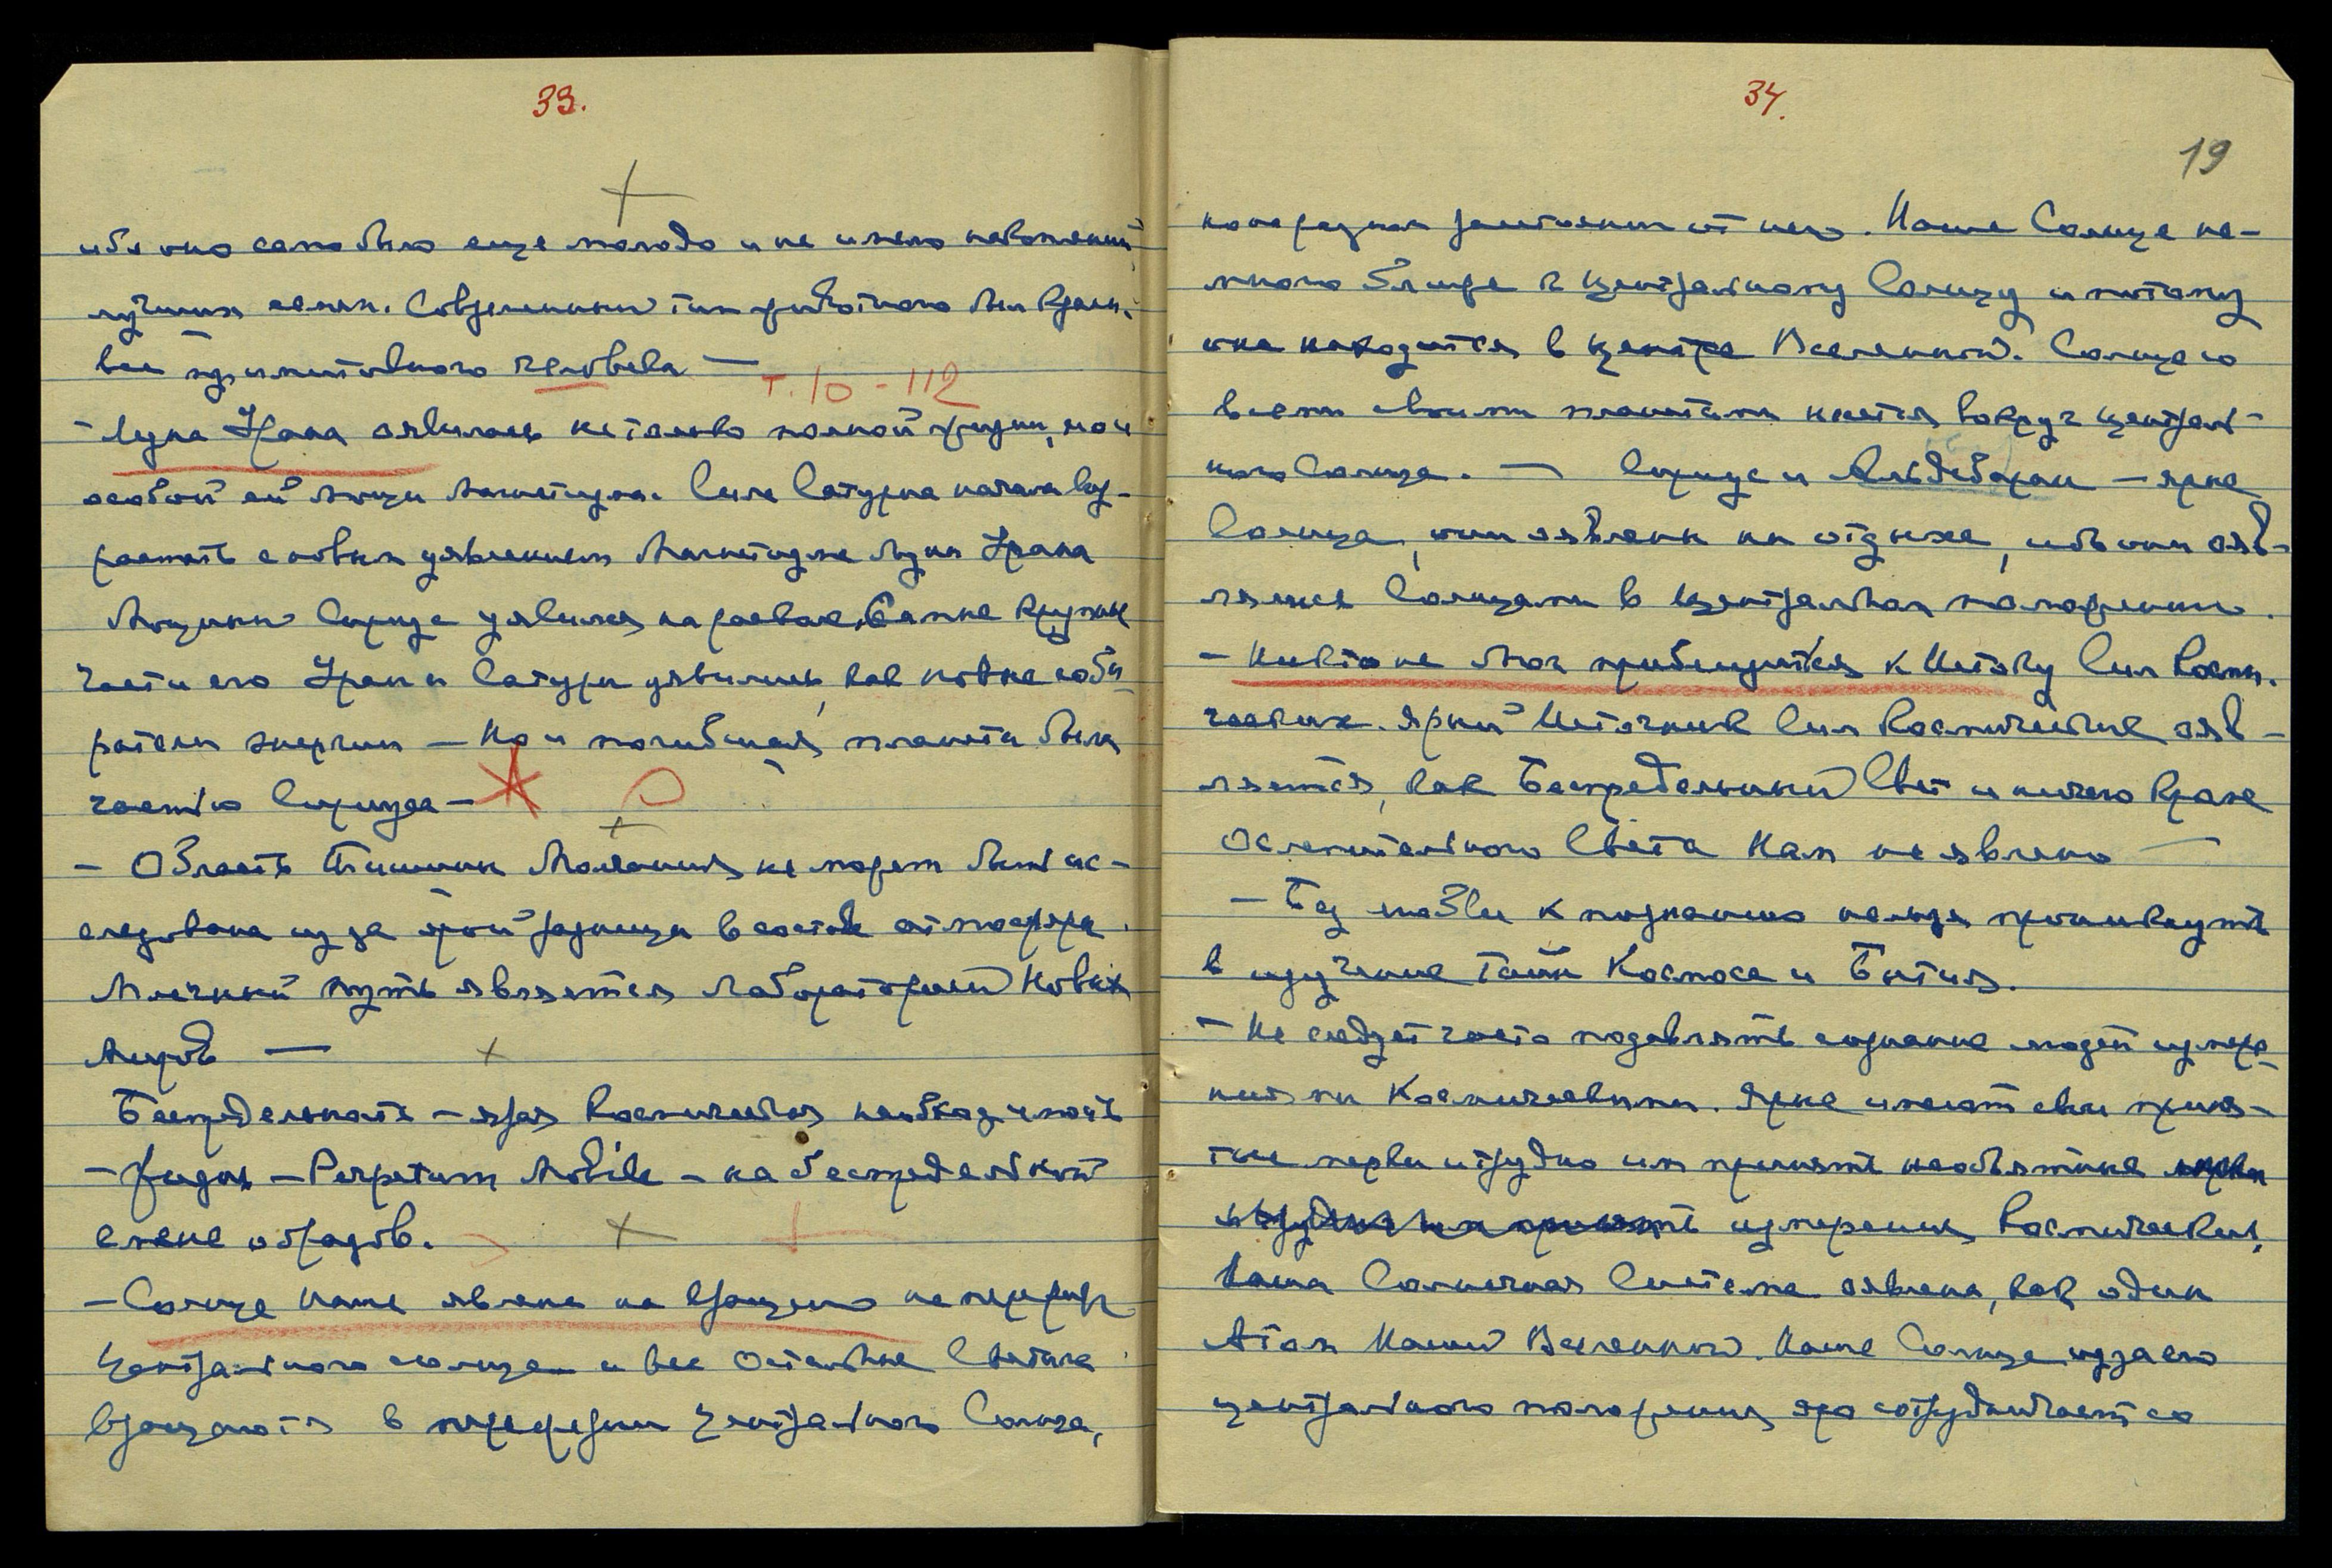 33.
ибо оно само было еще молодо и не имело накоплений
лучших семян. Современный тип животного был красивее
примитивного человека —
Т. 10 - 112
- Луна Урана явилась не только полной жизни, но и
особой ей мощи Магнетизма. Сила Сатурна начала воз-
растать с новым уявлением Магнетизма Луны Урана
Мощный Сириус уявился на развале. Самые крупные
части его Уран и Сатурн уявились, как новые соби-
ратели энергии — Но и погибшая планета была
частью Сириуса —
- Область Тишины Молчания не может быть ис-
следована из за ярой разницы в составе атмосферы.
Млечный путь является лабораторией Новых
Миров —
Беспредельность - ярая Космическая необходимость
- Жизнь - Perpetum Mobile - на беспредельной
смене образов.
- Солнце Наше явлено на вращении на периферии
Центрального солнца и все Остальные Светила
вращаются в периферии Центрального Солнца,
34.
19
на разном расстоянии от него. Наше Солнце не-
много ближе к Центральному Солнцу и потому
оно находится в центре Вселенной. Солнце со
всеми своими планетами несется вокруг Централь-
ного Солнца. — Сириус и Альдебаран - яркие
Солнца, они явлены на отдыхе, ибо они яв-
лялись Солнцами в Центральном положении.
- Никто не мог приблизиться к Истоку Сил Косми-
ческих. Ярый Источник Сил Космических яв-
ляется, как Беспредельный Свет и ничего кроме
Ослепительного Света Нам не явлено —
- Без любви к познанию нельзя проникнуть
в изучение Тайн Космоса и Бытия.
- Не следует часто подавлять сознание людей измере-
ниями Космическими. Ярые имеют свои приня-
тые мерки и трудно им принять необъятные
измерения Космические,
Наша Солнечная Система явлена, как один
Атом Нашей Вселенной. Наше Солнце из за его
центрального положения яро сотрудничает со